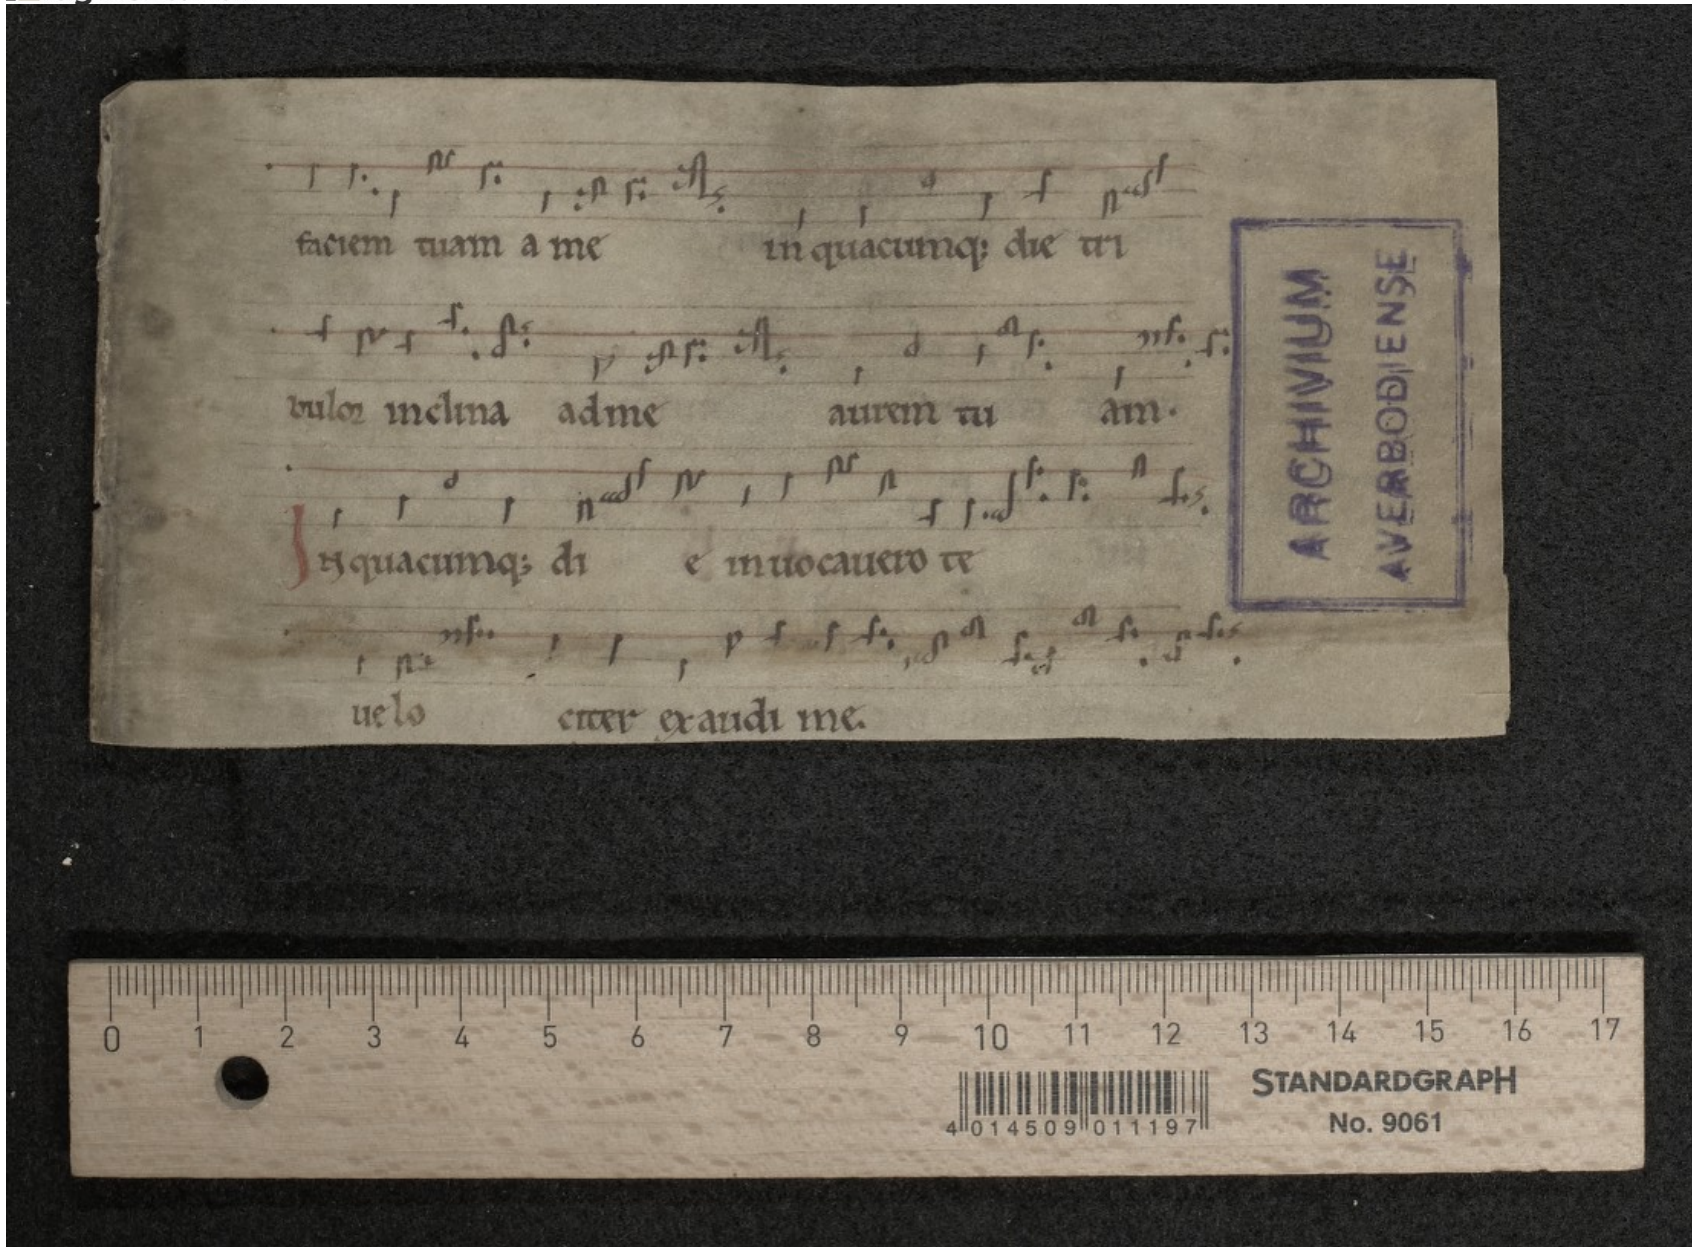 faciem tuam a me in quacumq; die tri
bulor inclina ad me aurem tu am.
In quacumq; di e inuocauero te
uelo citer exaudi me.
ARCHIVIUM
AVERBODIENSE
0 1 2 3 4 5 6 7 8 9 10 11 12 13 14 15 16 17
STANDARDGRAPH
No. 9061
4 014509 011197